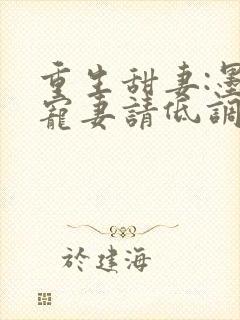 重生甜妻:墨
寵妻請低調
於建海